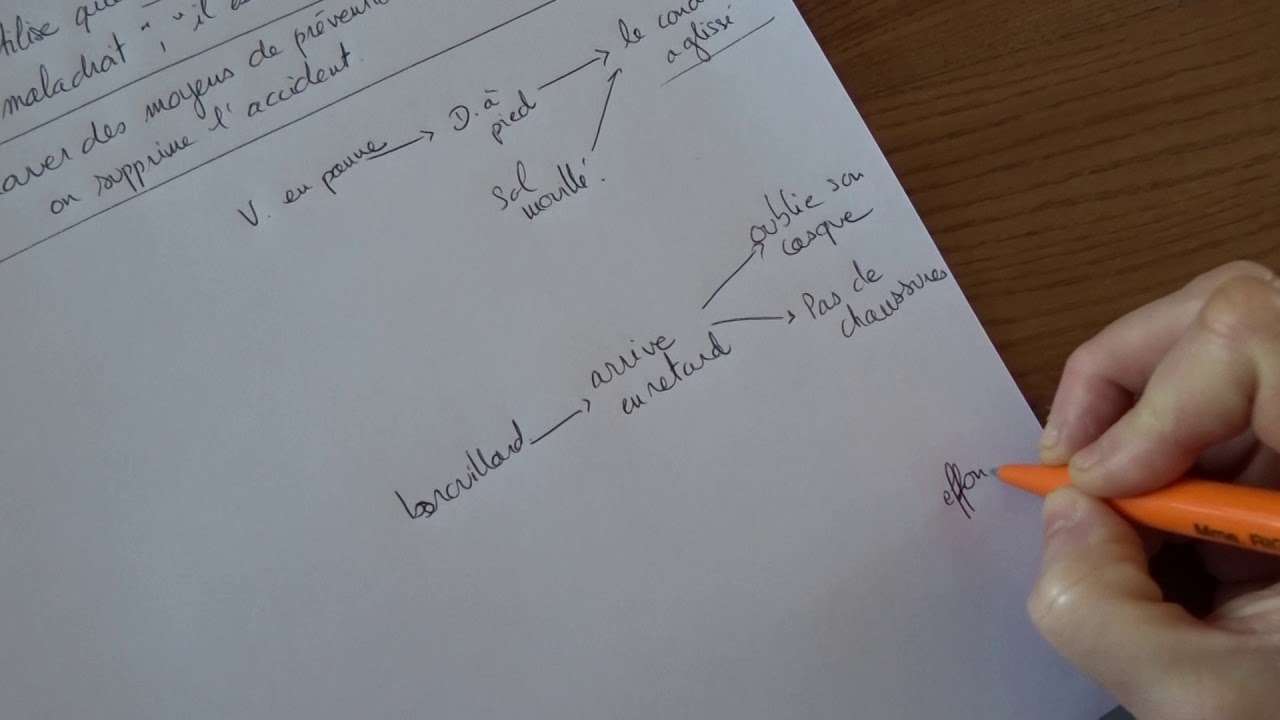 utilise que
maladroit", "il
des moyens de
on supprime l'accident.
V. en panne
D. à
pied
le cond
a glissé
Sol
mouillé.
brouillard
arrive
en retard
oublie son
casque
Pas de
chaussures
effon